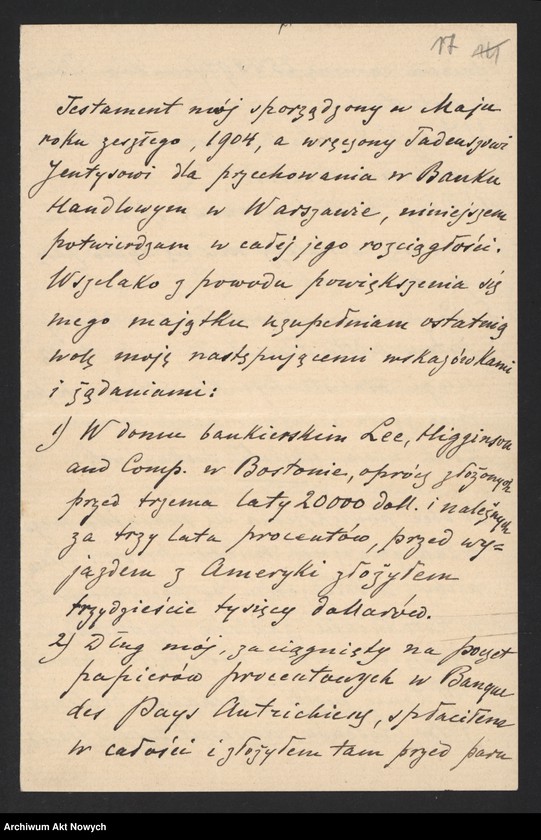 17 141
Testament mój sporządzony w Maju
roku zeszłego, 1904, a wręczony Tadeuszowi
Jentysowi dla przechowania w Banku
Handlowym w Warszawie, niniejszem
potwierdzam w całej jego rozciągłości.
Wszelako z powodu powiększenia się
mego majątku uzupełniam ostatnią
wolę moją następującemi wskazówkami
i żądaniami:
1) W domu bankierskim Lee, Higginson
and Comp. w Bostonie, oprócz złożonych
przed trzema laty 20000 doll. i należnych
za trzy lata procentów, przed wy=
jazdem z Ameryki złożyłem
trzydzieście tysięcy dollarów.
2) Dług mój, zaciągnięty na poczet
papierów procentowych w Banque
des Pays Autrichiens, spłaciłem
w całości i złożyłem tam przed paru
Archiwum Akt Nowych